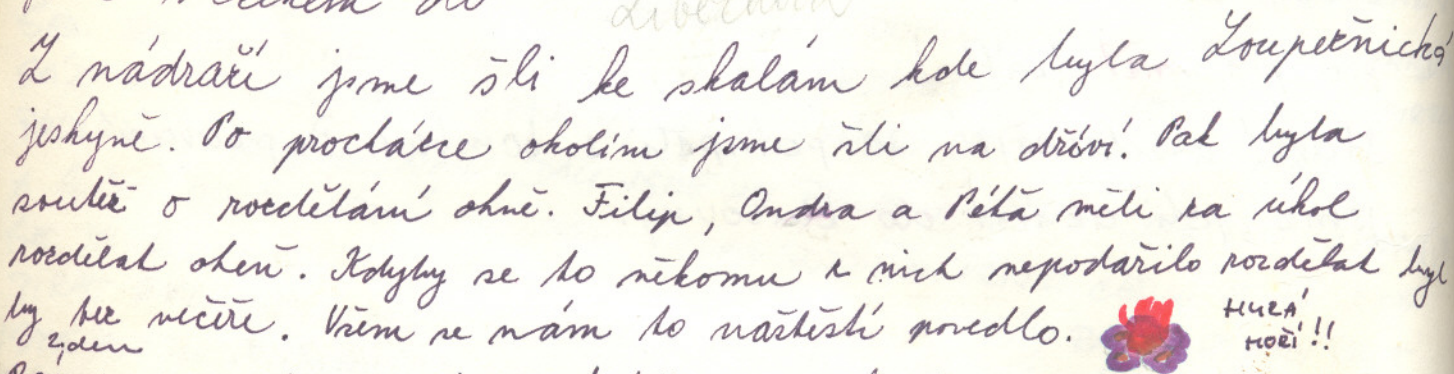 Z nádraží jsme šli ke skalám kde byla Loupežnická
jeskyně. Po procházce okolím jsme šli na dříví. Pak byla
soutěž o rozdělání ohně. Filip, Ondra a Péťa měli za úkol
rozdělat oheň. Kdyby se to někomu z nich nepodařilo rozdělat byl
by bez večeře. Všem se nám to naštěstí povedlo. HURÁ
HOŘÍ!!